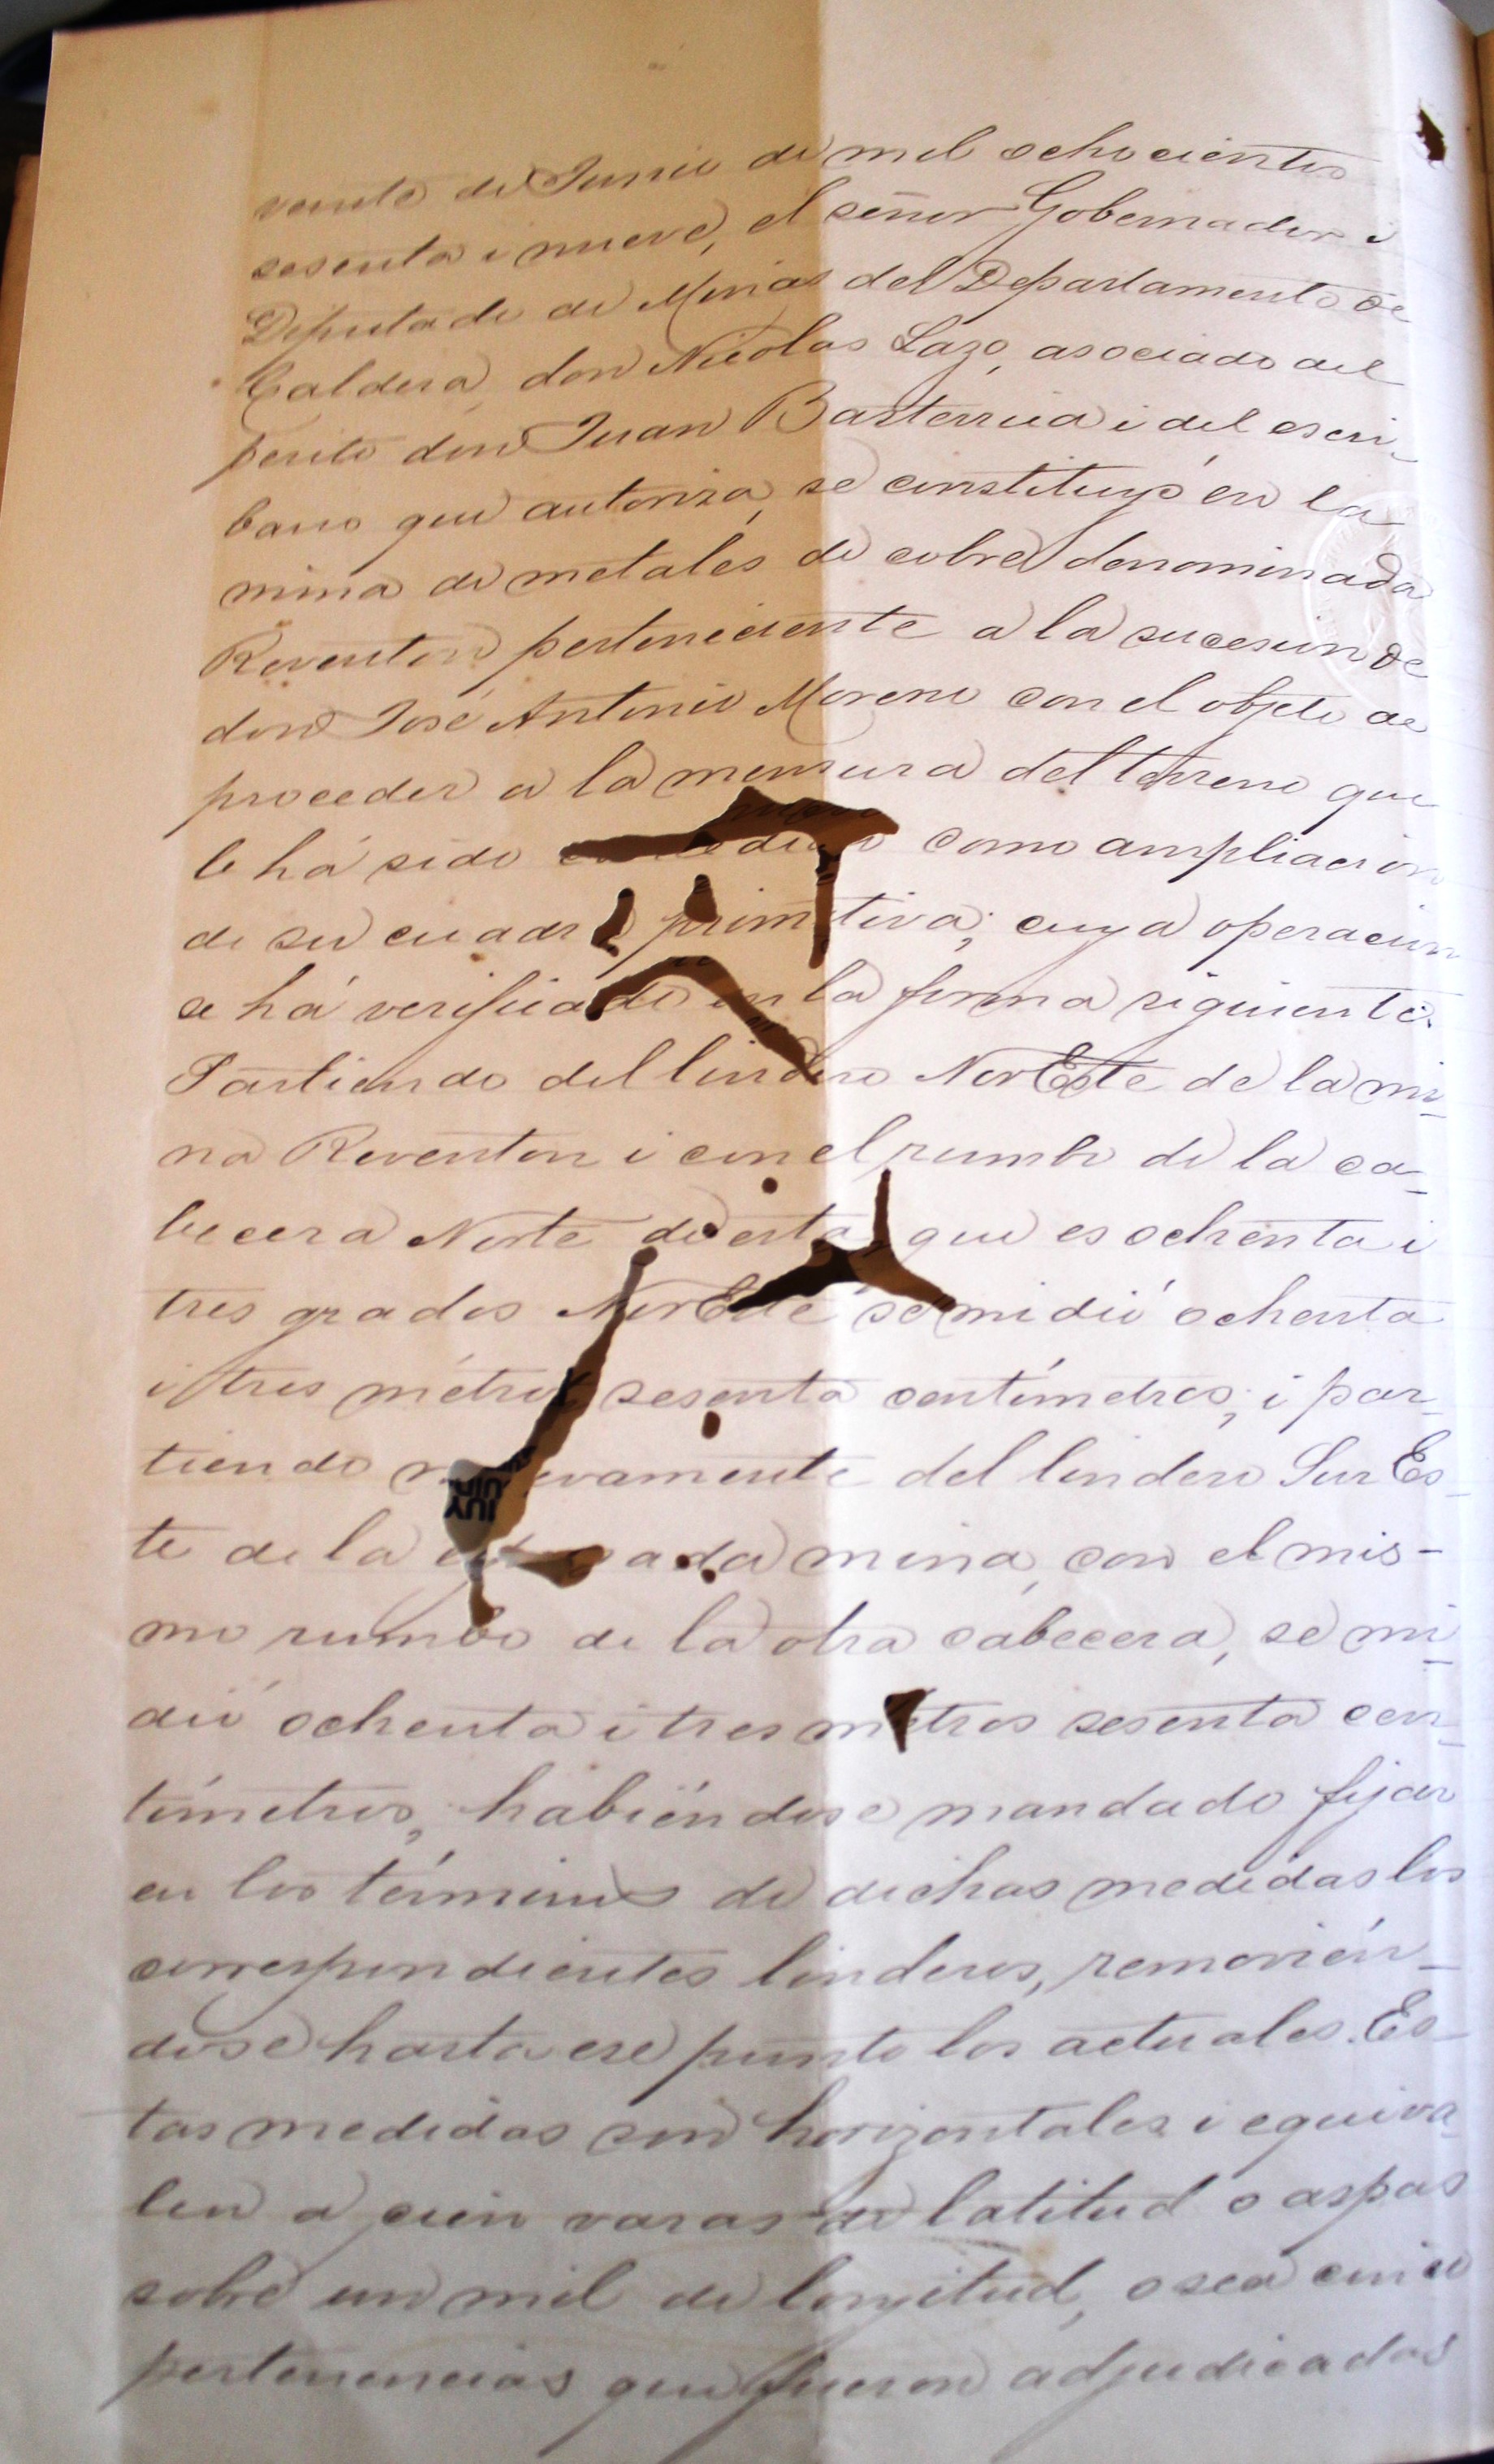 veinte de Junio de mil ochocientos
sesenta i nueve, el señor Gobernador i
Diputado de Minas del Departamento de
Caldera, don Nicolas Lazo, asociado del
perito don Juan Basterrica i del escri-
bano que autoriza, se constituyó en la
mina de metales de cobre denominada
Reventon perteneciente a la sucesion de
don José Antonio Moreno con el objeto de
proceder a la mensura del terreno que
le há sido como ampliacion
de su cuadra primitiva; cuya operacion
se há verificado en la forma siguiente.
Partiendo del lindero NorEste de la mi-
na Reventon i con el rumbo de la ca-
becera Norte de esta, que es ochenta i
tres grados NorEste se midió ochenta
i tres métros sesenta centímetros; i par-
tiendo nuevamente del lindero Sur Es-
te de la mina, con el mis-
mo rumbo de la otra cabecera, se mi-
dió ochenta i tres metros sesenta cen-
tímetros, habiéndose mandado fijar
en los términos de dichas medidas los
correspondientes linderos, removién-
dose hasta ese punto los actuales. Es-
tas medidas son horizontales i equiva-
len a cien varas de latitud o aspas
sobre un mil de lonjitud, o sea cinco
pertenencias que fueron adjudicadas